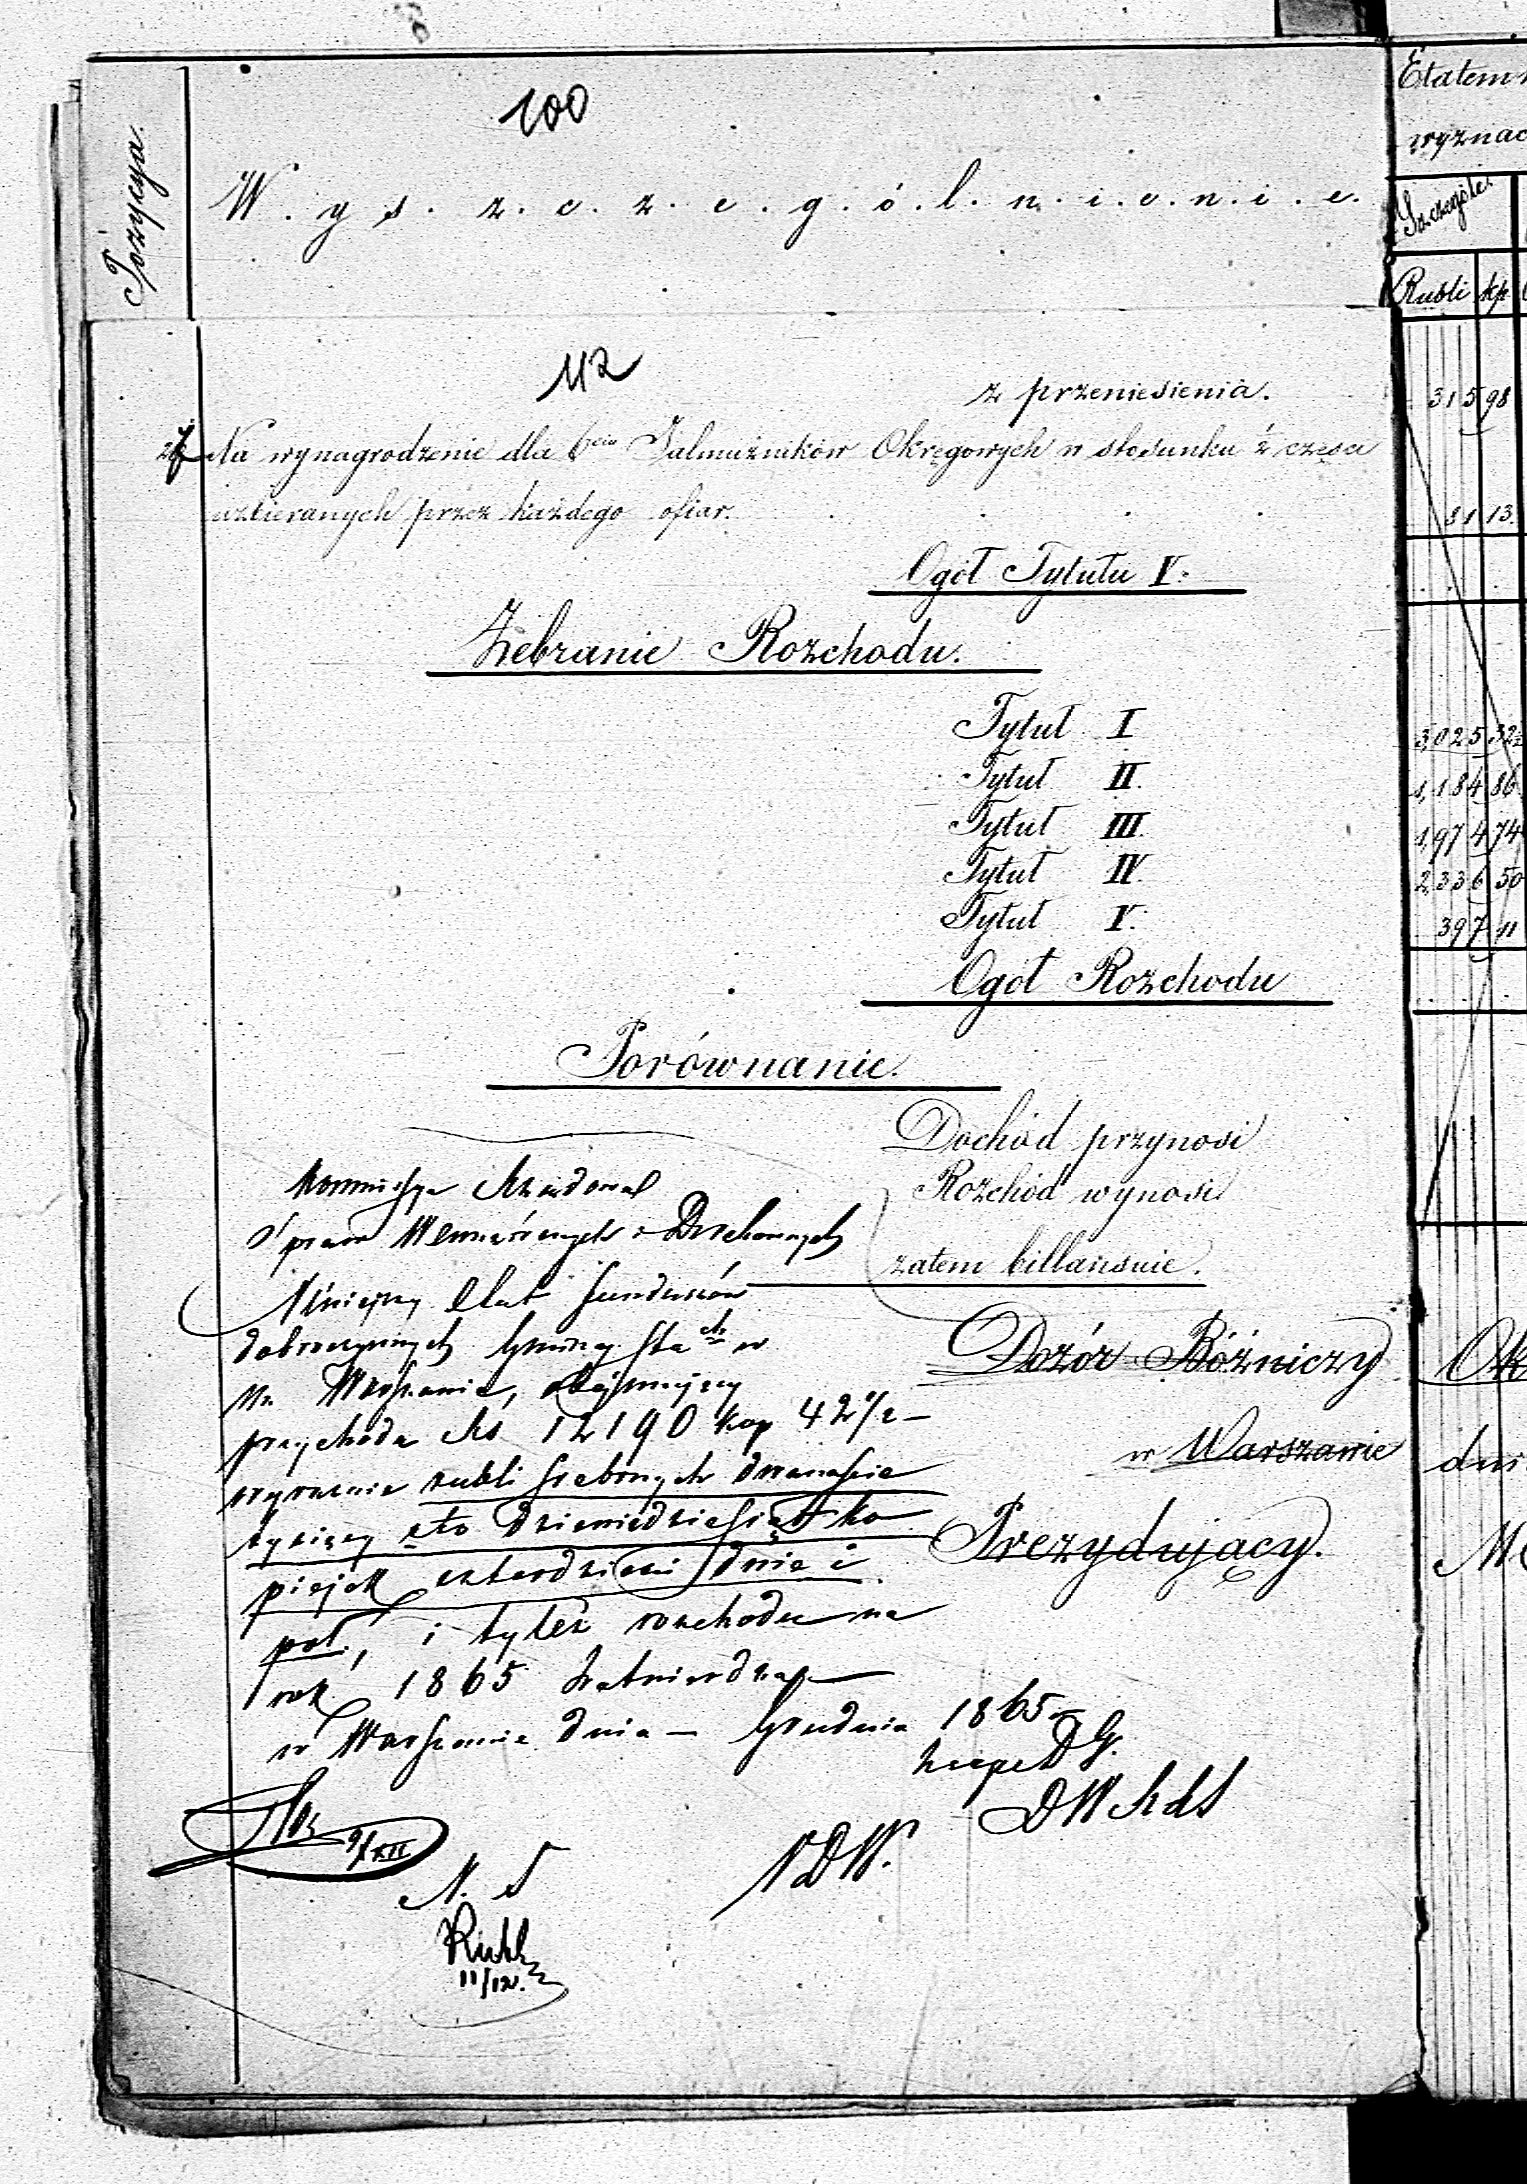 100
Pozycya.
W.y.s.z.c.z.e.g.ó.l.n.i.e.n.i.e.
Etatem
wyznac
Szczegóło
Rubli kp
112
z przeniesienia. 315 98
27 Na wynagrodzenie dla 6ciu Jałmużników Okręgowych w stosunku części
uzbieranych przez każdego ofiar. 81 13
Ogół Tytułu V.
Zebranie Rozchodu.
Tytuł I 3,025 32½
Tytuł II. 1,184 86
Tytuł III. 1,974 74
Tytuł IV. 2,336 50
Tytuł V. 397 11
Ogół Rozchodu
Porównanie.
Dochód przynosi
Rozchód wynosi
zatem billansuie.
Kommissya Rządowa
Spraw Wewnętrznych i Duchownych
Niniejszy Etat funduszów
dobroczynnych Gminy w
m. Warszawie, obejmujący
przychodu Rs 12190 kop 42½ –
wyraźnie rubli srebrnych dwanaście
tysięcy sto dziewiędziesiąt ko
piejek czterdzieści dwie i
pół, i tyleż rozchodu na
rok 1865 zatwierdza
w Warszawie dnia – Grudnia 1865
Dozór Bóżniczy
w Warszawie
Prezydujący.
Ok
dni
DG.
DW
VDW.
9/XII
N. S
11/12.